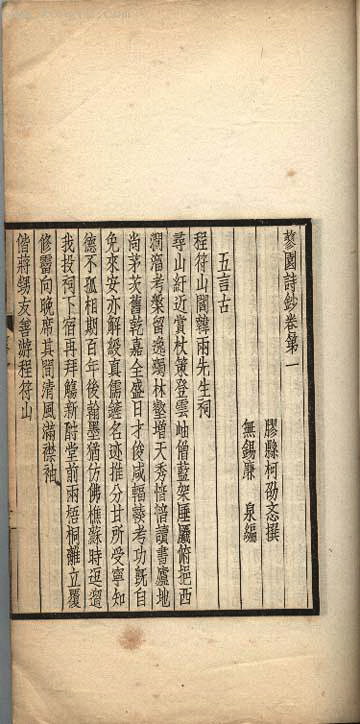 蓼園詩鈔卷第一
膠縣柯劭忞撰
無錫廉泉編
五言古
程符山閻韓兩先生祠
尋山紆近賞杖策登雲岫僧藍架厜㕒俯挹西
澗溜考槃留逸躅林壑增天秀愔愔讀書廬地
尚茅茨舊乾嘉全盛日才俊咸輻輳考功旣自
免來安亦解綬真儒薶名迹推分甘所受寧知
德不孤相期百年後翰墨猶仿佛樵蘇時逗遛
我投祠下宿再拜觴新酎堂前兩梧桐離立覆
修霤向晚席其間清風滿襟袖
偕蔣甥友善游程符山